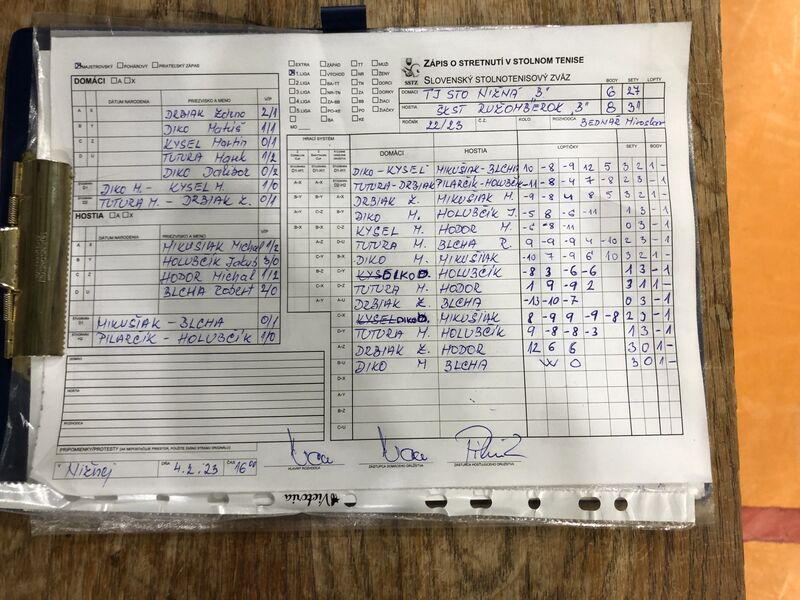 MAJSTROVSKÝ POHÁROVÝ PRIATEĽSKÝ ZÁPAS
DOMÁCI A X
DÁTUM NARODENIA PRIEZVISKO A MENO V/P
A X DRBIAK Želmo 2/1
B Y DIKO Matúš 1/1
C Z KYSEL Martin 0/1
D U TUTURA Marek 1/2
DIKO Dalibor 0/2
ŠTVORHRA D1 DIKO M. - KYSEL M. 1/0
ŠTVORHRA D2 TUTURA M. - DRBIAK Ž. 0/1
HOSTIA A X
DÁTUM NARODENIA PRIEZVISKO A MENO V/P
A X MIKUŠIAK Michal 1/2
B Y HOLUBČÍK Jakub 3/0
C Z HODOR Michal 1/2
D U BLCHA Robert 2/0
ŠTVORHRA MIKUŠIAK - BLCHA 0/1
ŠTVORHRA PILARČÍK - HOLUBČÍK 1/0
DOMÁCI
HOSTIA
ROZHODCA
PRIPOMIENKY/PROTESTY (AK NEPOSTAČUJE PRIESTOR, POUŽITE ZADNÚ STRANU ORIGINÁLU)
V Nižnej DŇA 4.2.23 ČAS 16⁰⁰
HLAVNÝ ROZHODCA ZÁSTUPCA DOMÁCEHO DRUŽSTVA ZÁSTUPCA HOSŤUJÚCEHO DRUŽSTVA
EXTRA ZÁPAD TT MUŽI
1.LIGA VÝCHOD NR ŽENY
2.LIGA BA-TT TN DORCI
3.LIGA NR-TN ZA DORKY
4.LIGA ZA-BB BB ŽIACI
5.LIGA PO-KE PO ŽIAČKY
BA KE
MO
SSTZ
ZÁPIS O STRETNUTÍ V STOLNOM TENISE
SLOVENSKÝ STOLNOTENISOVÝ ZVÄZ
BODY SETY LOPTY
DOMÁCI TJ STO NIŽNÁ "B" 6 27
HOSTIA ŠKST RUŽOMBEROK "B" 8 31
ROČNÍK 22/23 Č.Z. KOLO ROZHODCA BEDNÁŘ Miroslav
HRACÍ SYSTÉM
DOMÁCI HOSTIA LOPTIČKY SETY BODY
DIKO - KYSEL MIKUŠIAK - BLCHA 10 -8 -9 12 5 3 2 1 -
TUTURA - DRBIAK PILARČÍK - HOLUBČÍK -11 -8 4 7 -8 2 3 - 1
DRBIAK Ž. MIKUŠIAK M. -9 -8 4 8 5 3 2 1 -
DIKO M. HOLUBČÍK J. -5 8 -6 -11 1 3 - 1
KYSEL M. HODOR M. -6 -8 -11 0 3 - 1
TUTURA M. BLCHA R. 9 -9 -9 4 -10 2 3 - 1
DIKO M. MIKUŠIAK -10 7 -9 6 10 3 2 1 -
DIKO D. HOLUBČÍK -8 3 -6 -6 1 3 - 1
TUTURA M. HODOR 1 9 -9 2 3 1 1 -
DRBIAK Ž. BLCHA -13 -10 -7 0 3 - 1
DIKO D. MIKUŠIAK 8 -9 9 -9 -8 2 3 - 1
TUTURA M. HOLUBČÍK 9 -8 -8 -3 1 3 - 1
DRBIAK Ž. HODOR 12 6 6 3 0 1 -
DIKO M BLCHA W O 3 0 1 -
Victoria